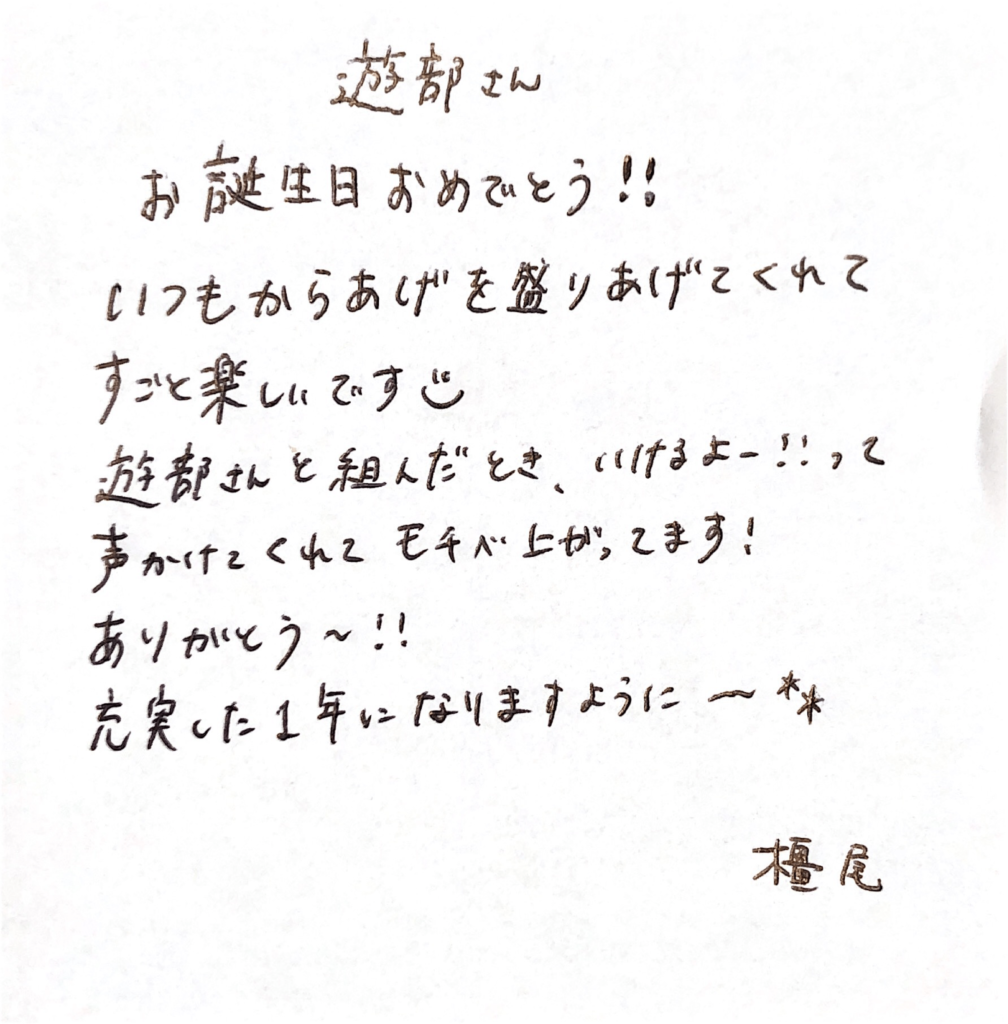 遊部さん
お誕生日おめでとう!!
いつもからあげを盛りあげてくれて
すごと楽しいです
遊部さんと組んだとき、いけるよー!!って
声かけてくれて モチベ上がってます!
ありがとう〜!!
充実した1年になりますように〜**
橿尾